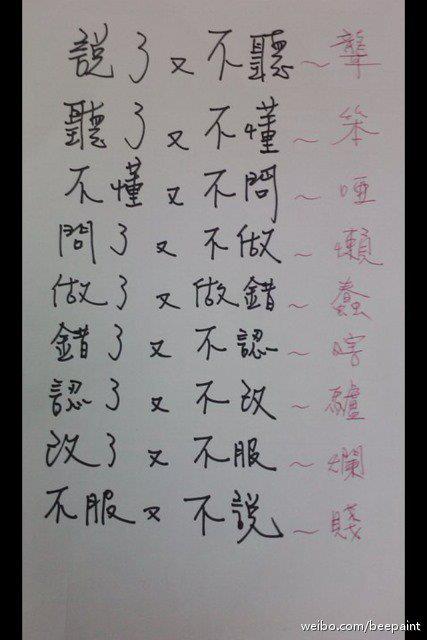 說了又不聽～聾
聽了又不懂～笨
不懂又不問～啞
問了又不做～懶
做了又做錯～蠢
錯了又不認～瞎
認了又不改～驢
改了又不服～爛
不服又不說～賤
weibo.com/beepaint